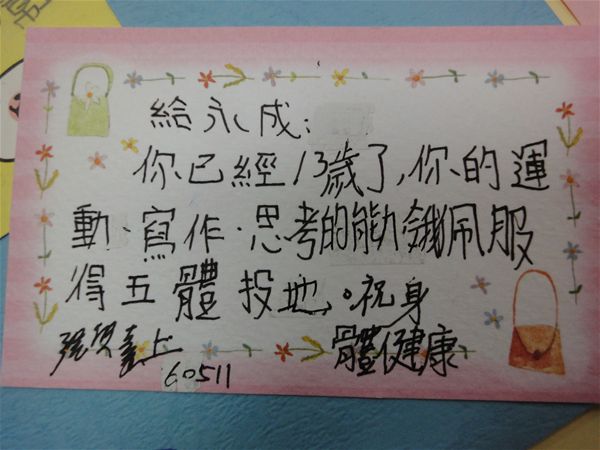 給永成:
你已經13歲了,你的運
動、寫作、思考的能力令我佩服
得五體投地。祝身
體健康
上
60511